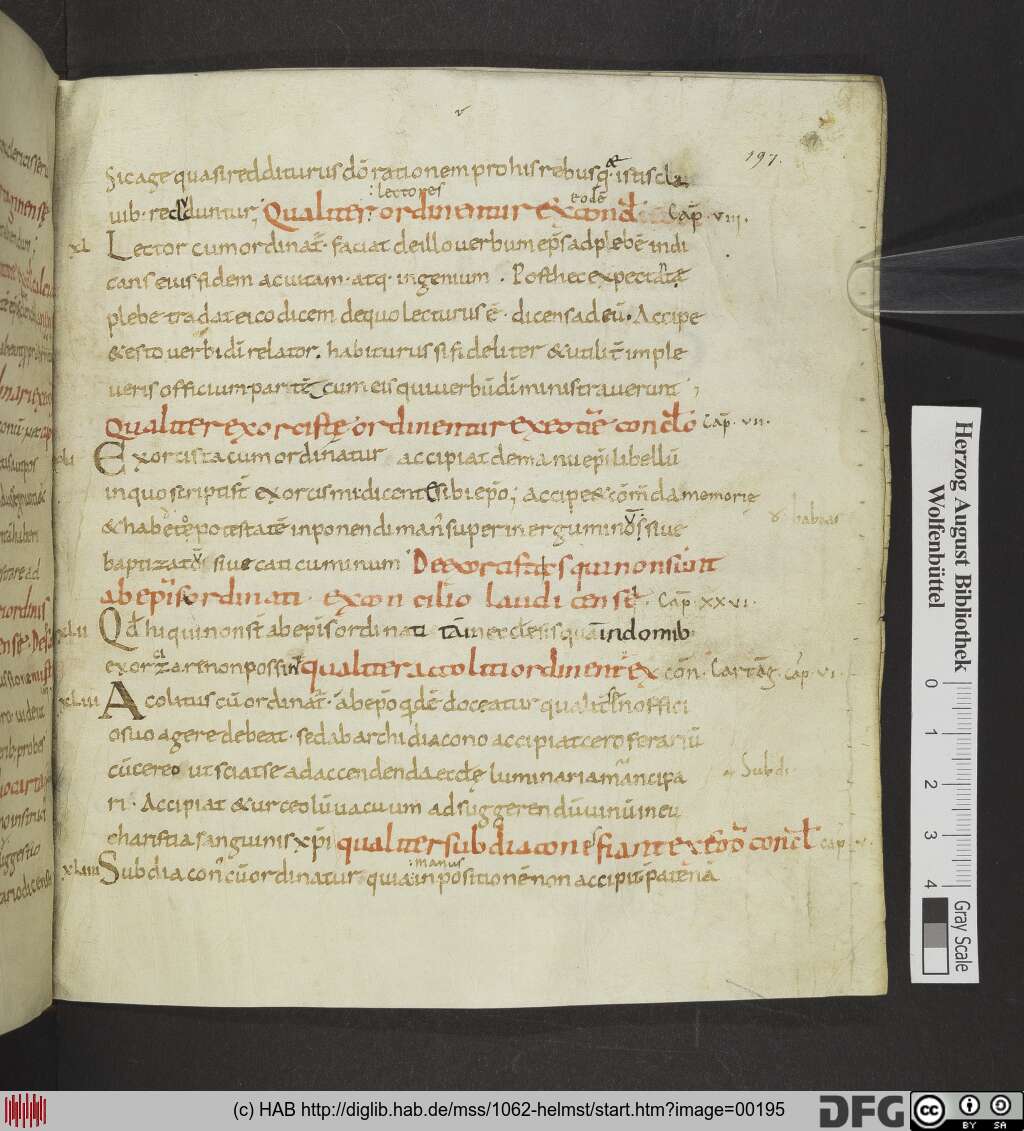 197.
Sic age quasi redditurus dō rationem pro his rebus q; & istis cla
uib· recluduntur; Qualiter lectores ordinentur ex eodē concil Cap̄· viii·
xl Lector cum ordinat̄· faciat de illo verbum ep̄s ad plebē indi
cans eius fidem ac uitam· atq· ingenium· Post hec expectante
plebe tradat ei codicem de quo lecturus ē· dicens ad eū· Accipe
& esto verbi dī relator· habiturus si fideliter & utilit̄ imple
veris officium partē cum eis qui verbū dī ministraverunt;
Qualiter exorcistę ordinentur ex eodē concil Cap̄· vii·
xli Exorcista cum ordinatur accipiat de manu ep̄i libellū
in quo scripti st̄ exorcismi dicente sibi ep̄o; accipe & com̄da memorię
& habeto potestatē inponendi man̄ super inerguminū siue
baptizatū siue caticuminum De exorcistis qui non sunt
ab ep̄is ordinati· ex concilio laudicensę· Cap̄· xxvi·
xlii Qd̄ hi qui non st̄ ab ep̄is ordinati tam in ecclesiis quā in domib·
exorcizare non possint qualiter accoliti ordinent̄ ex con̄· Cartag̃· cap̄· vi·
xliii Acolatus cū ordinat̄· ab ep̄o qidē doceatur qualit̄ in offici
o suo agere debeat· sed ab archidiacono accipiat ceroferariū
cū cereo ut sciat se ad accendenda ecclę luminaria mancipa
ri· Accipiat & urceolū vacuum ad suggerendū vinū in eu
charistia sanguinis xp̄i qualiter subdiacones fiant ex eodē concil cap̄· v·
xliiii Subdiacon̄ cū ordinatur quia manus inpositionē non accipit patenā
habeas
Subdi·
Herzog August Bibliothek
Wolfenbüttel
0 1 2 3 4
Gray Scale
(c) HAB http://diglib.hab.de/mss/1062-helmst/start.htm?image=00195
DFG
cc BY SA